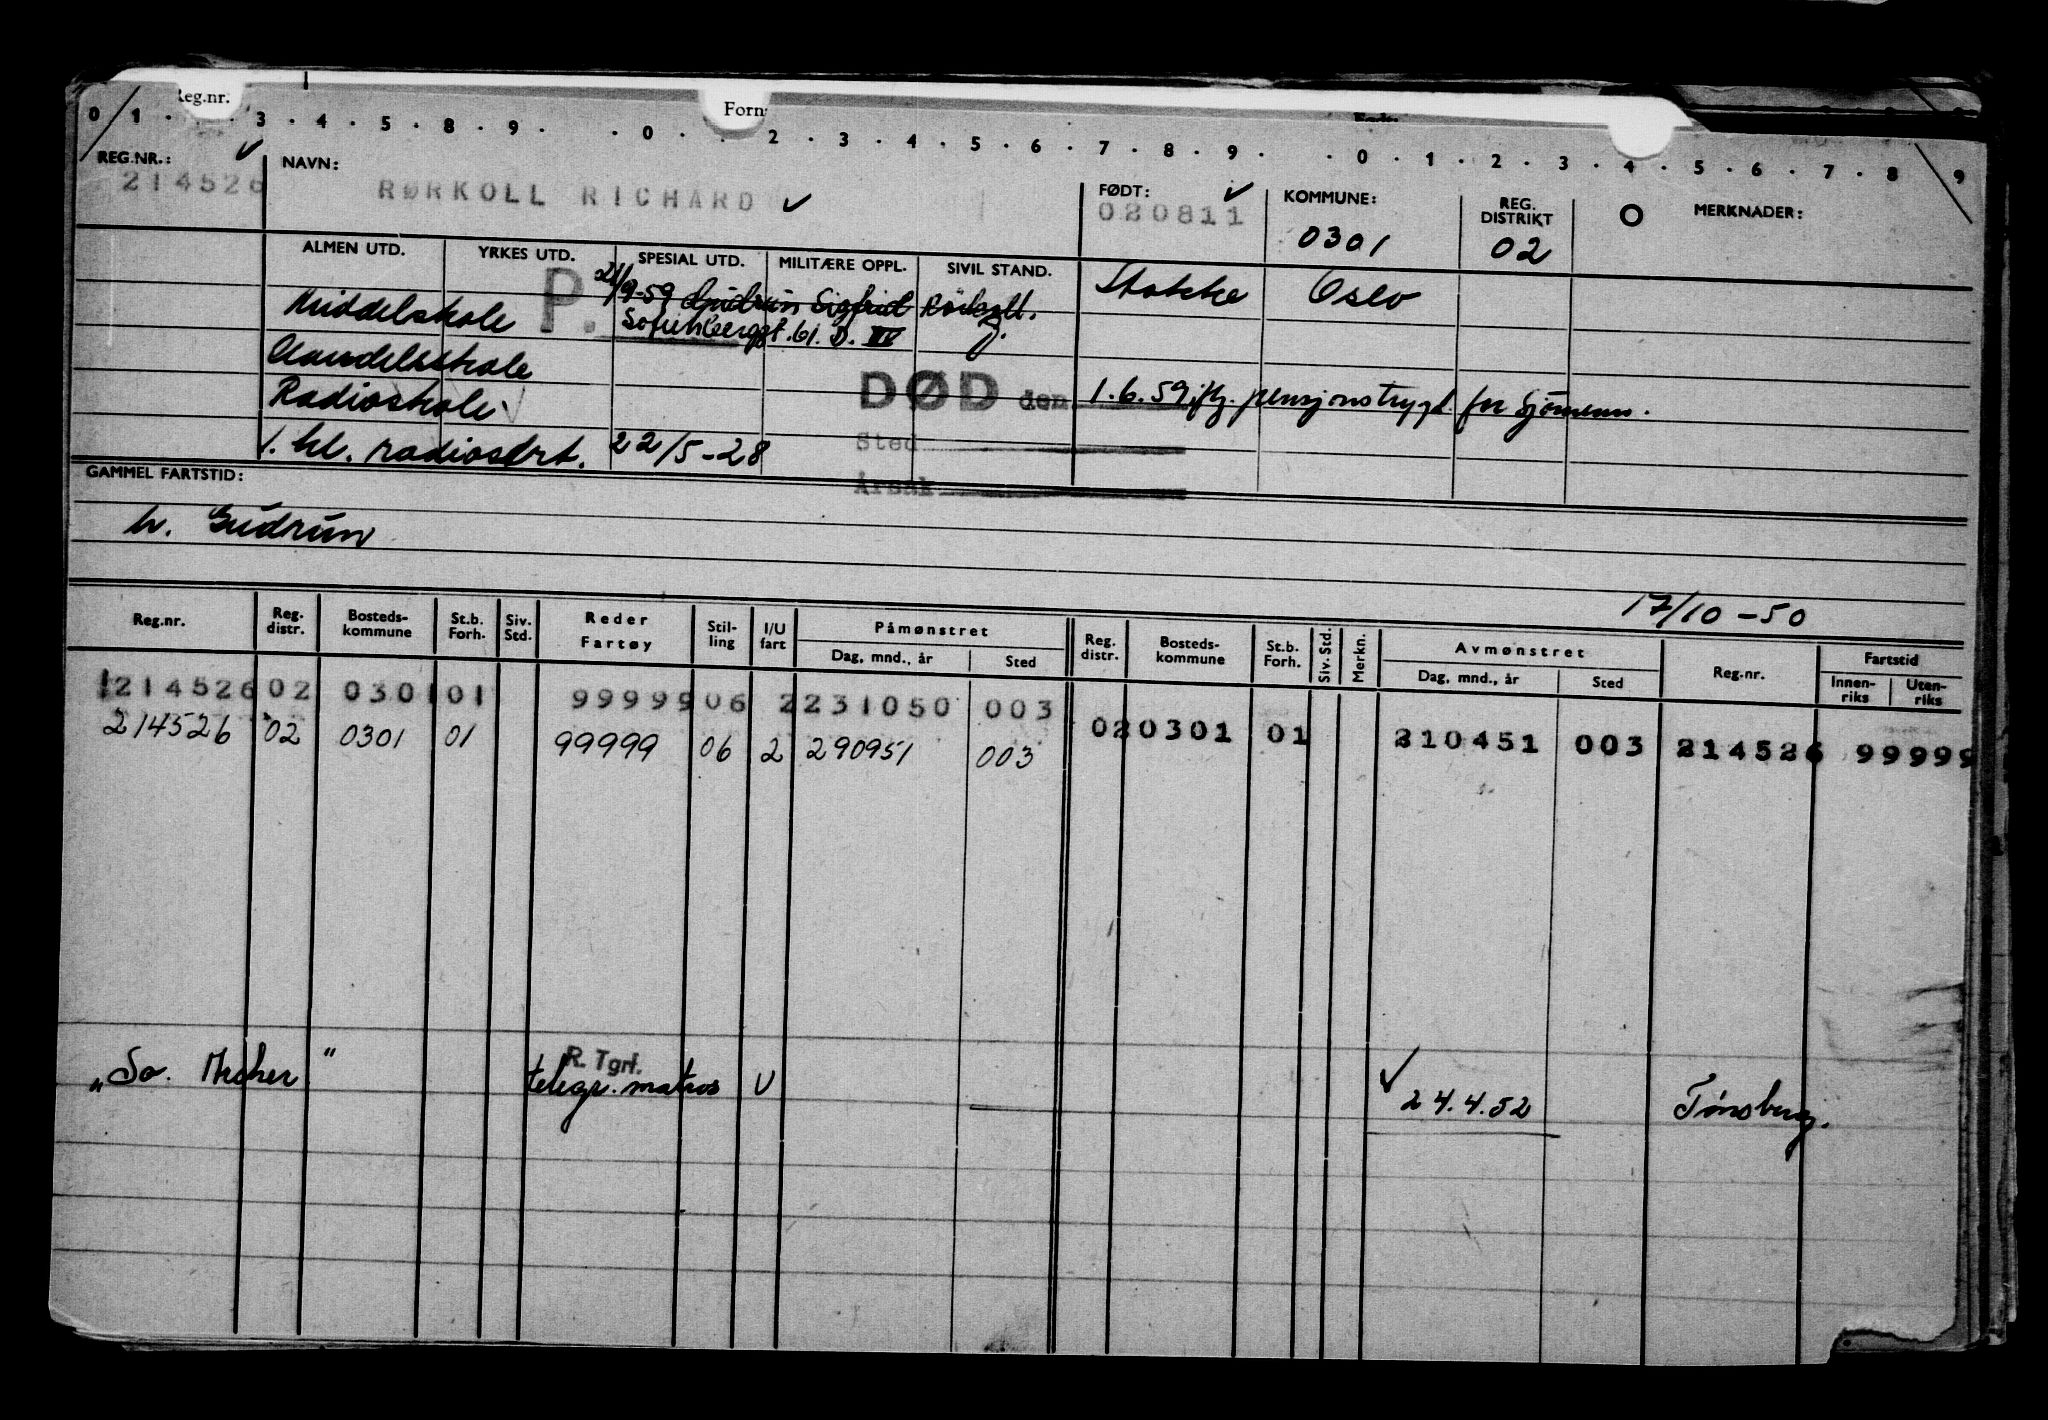 Reg.nr. Forn
0 1 . . 3 . 4 . 5 . 8 . 9 . . 0 . . 2 . 3 . 4 . 5 . 6 . 7 . 8 . 9 . . 0 . 1 . 2 . 3 . 4 . 5 . 6 . 7 . 8 . 9
REG.NR.: NAVN: FØDT: KOMMUNE: REG. DISTRIKT O MERKNADER:
214526 RØRKOLL RICHARD 020811 0301 02
ALMEN UTD. YRKES UTD. SPESIAL UTD. MILITÆRE OPPL. SIVIL STAND. Stokke Oslo
Middelskole P. 21/9-59 Gudrun Sigfrid Rörkoll.
Sofienberggt. 61. D. III J.
Handelsskole
Radioskole DØD den 1.6.59 iflg. pensjonstrygd. for Sjömenn.
Sted
1. kl. radiosert. 22/5-28
Årsak
GAMMEL FARTSTID:
h. Gudrun
17/10-50
Reg.nr. Reg. distr. Bosteds-kommune St.b. Forh. Siv. Std. Reder Fartøy Stil-ling I/U fart Påmønstret Dag, mnd., år Sted Reg. distr. Bosteds-kommune St.b. Forh. Siv. Std. Merkn. Avmønstret Dag, mnd., år Sted Reg.nr. Fartstid Innen-riks Uten-riks
214526 02 0301 01 99999 06 2 231050 003 02 0301 01 210451 003 214526 99999
214526 02 0301 01 99999 06 2 290951 003
R. Tgrf.
"So. " telegr. matros U 24.4.52 Tönsberg.